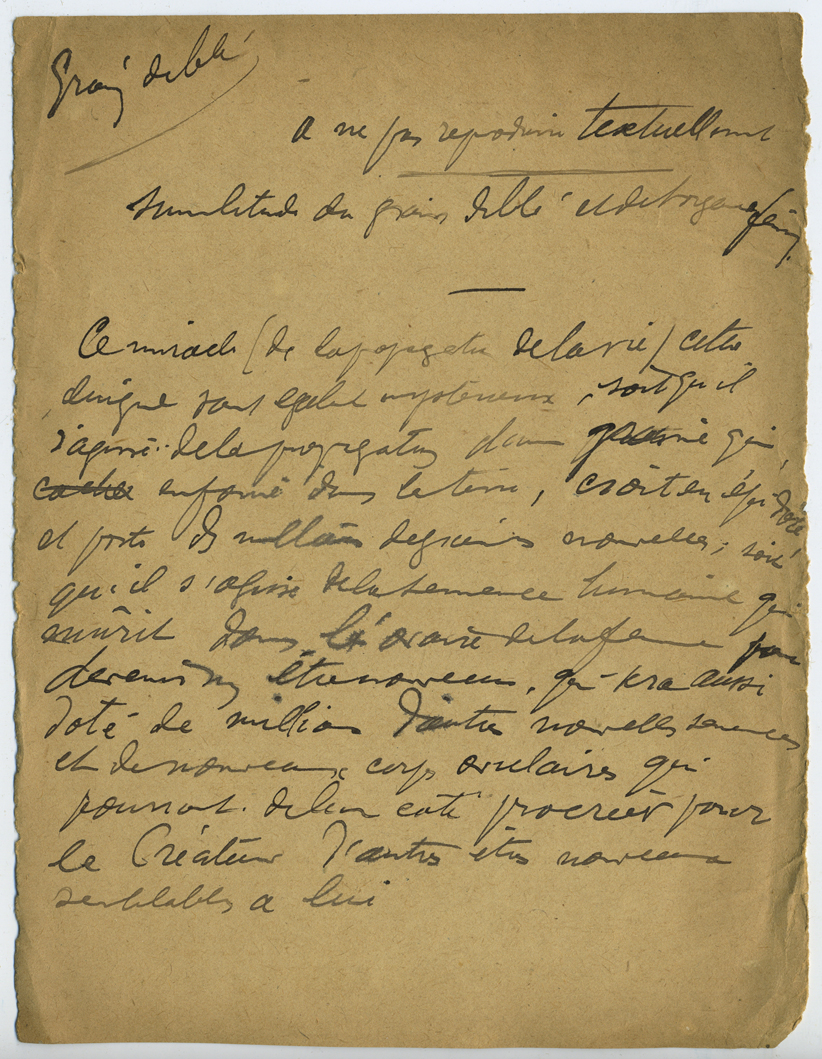 Grain de blé
a ne pas reproduire textuellement
Similitude du grain de blé et de l'organe fémin.
Ce miracle (de la propagation de la vie) cette
énigme sont également mystérieux, soit qu'il
s'agisse de la propagation d'une graine qui,
cachée enfermé dans la terre, croît en épi doré
et porte des millions de graines nouvelles; soit
qu'il s'agisse de la semence humaine qui
mûrit dans l'ovaire de la femme pour
devenir un être nouveau, qui sera aussi
doté de millions d'autres nouvelles semences
et de nouveaux corps ovulaires qui
pourront de leur coté procréer pour
le Créateur d'autres êtres nouveaux
semblables a lui